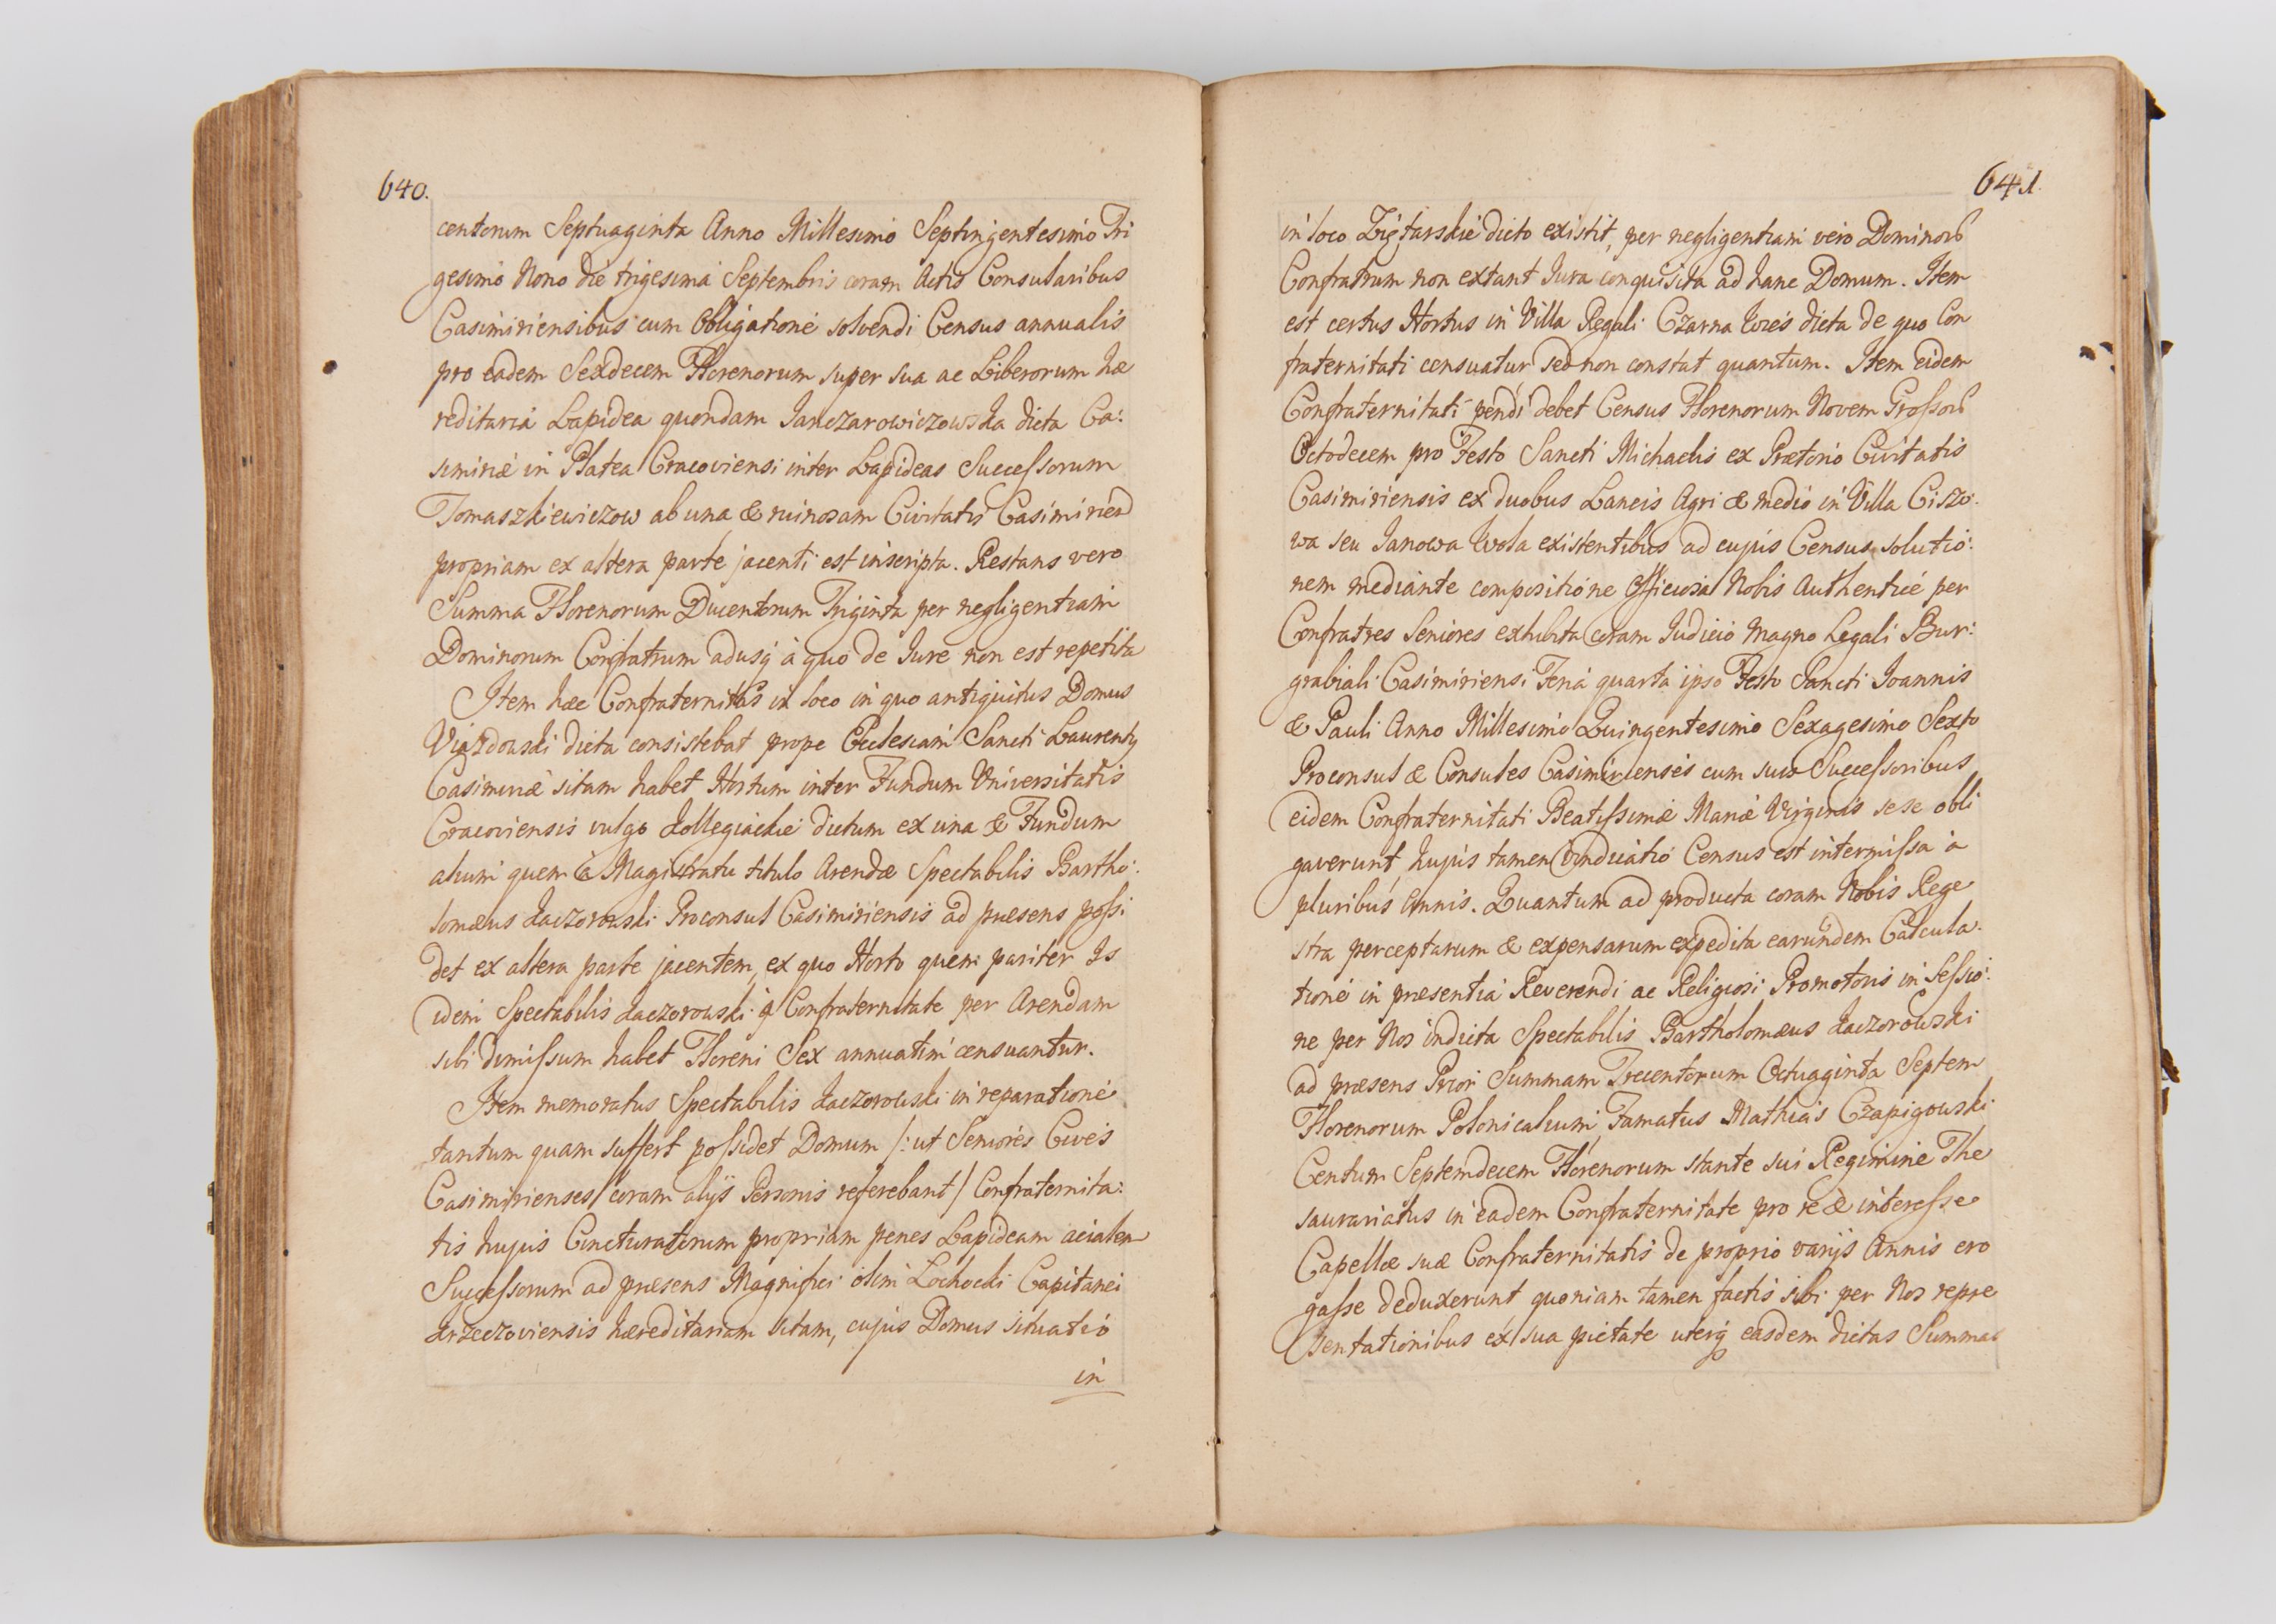 640.
centorum Septuaginta Anno Millesimo Septingentesimo Tri
gesimo Nono die trigesima Septembris coram Actis Consularibus
Casimiriensibus cum Obligatione solvendi Census annualis
pro eadem Sexdecem Florenorum super sua ac Liberorum hæ
reditaria Lapidea quondam Janczarowiczowska dicta Ca:
simiriæ in Platea Cracoviensi inter Lapideas Successorum
Tomaszkiewiczow ab una & ruinosam Civitatis Casimirien
propriam ex altera parte jacenti est inscripta. Restans vero
Summa Florenorum Ducentorum Triginta per negligentiam
Dominorum Confratrum adusq́ à quo de Jure non est repetita
Item hæc Confraternitas in loco in quo antiquitus Domus
dicta consistebat prope Ecclesiam Sancti Laurentij
Casimiriæ sitam habet Hortum inter Fundum Universitatis
Cracoviensis vulgo Kollegiackie dictum ex una & Fundum
alium quem à Magistratu titulo Arendæ Spectabilis Bartho:
lomæus Kaczorowski Proconsul Casimiriensis ad præsens possi
det ex altera parte jacentem, ex quo Horto quem pariter Is
idem Spectabilis Kaczorowski à Confraternitate per Arendam
sibi dimissum habet Floreni Sex annuatim censuantur.
Item memoratus Spectabilis Kaczorowski in reparatione
tantum quam suffert possidet Domum /: ut Seniores Cives
Casimirienses coram alijs Personis referebant / Confraternita:
tis hujus Cincturatorum propriam penes Lapideam acialem
Successorum ad præsens Magnifici olim Lochocki Capitanei
Krzeczoviensis hæreditariam sitam, cujus Domus situatio
in
641.
in loco dicto existit, per negligentiam vero Dominorũ
Confratrum non extant Jura conquisita ad hanc Domum. Item
est certus Hortus in Villa Regali Czarna Wieś dicta de quo Con
fraternitati censuatur sed non constat quantum. Item eidem
Confraternitati pendi debet Census Florenorum Novem Grossorũ
Octodecem pro Festo Sancti Michaelis ex Prætorio Civitatis
Casimiriensis ex duobus Laneis Agri & medio in Villa Ciszo:
wa seu Janowa Wola existentibus ad cujus Census solutio:
nem mediante compositione Officiosa Nobis Authentice per
Confratres Seniores exhibita coram Judicio Magno Legali Bur:
grabiali Casimiriensi Feria quarta ipso Festo Sancti Joannis
& Pauli Anno Millesimo Quingentesimo Sexagesimo Sexto
Proconsul & Consules Casimirienses cum suis Successoribus
eidem Confraternitati Beatissimæ Mariæ Virginis sese obli
gaverunt, hujus tamen Vindicatio Census est intermissa à
pluribus Annis. Quantum ad producta coram Nobis Rege
stra perceptarum & expensarum expedita earundem Calcula:
tione in præsentia Reverendi ac Religiosi Promotoris in Sessio:
ne per Nos indicta Spectabilis Bartholomæus Kaczorowski
ad præsens Prior Summam Trecentorum Octuaginta Septem
Florenorum Polonicalium, Famatus Mathias Czapigowski
Centum Septemdecem Florenorum stante sui Regimine The
saurariatus in eadem Confraternitate pro re & interesse
Capellæ suæ Confraternitatis de proprio varijs Annis ero
gasse deduxerunt quoniam tamen factis sibi per Nos repræ
sentationibus ex sua pietate uterq́ easdem dictas Summas